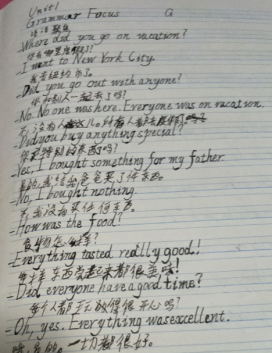 Unit1
Grammar Focus G
语法聚焦
-Where did you go on vacation?
你去哪里度假了?
-I went to New York City.
我去纽约市了。
-Did you go out with anyone?
你和别人一起去了吗?
-No. No one was here. Everyone was on vacation.
不,没有人
-Did you buy anything special?
-Yes, I bought something for my father.
-No, I bought nothing.
-How was the food?
食物怎么样?
-Everything tasted really good!
-Did everyone have a good time?
每个人都玩的很开心吗?
-Oh, yes. Everything was excellent.
一切都很好。